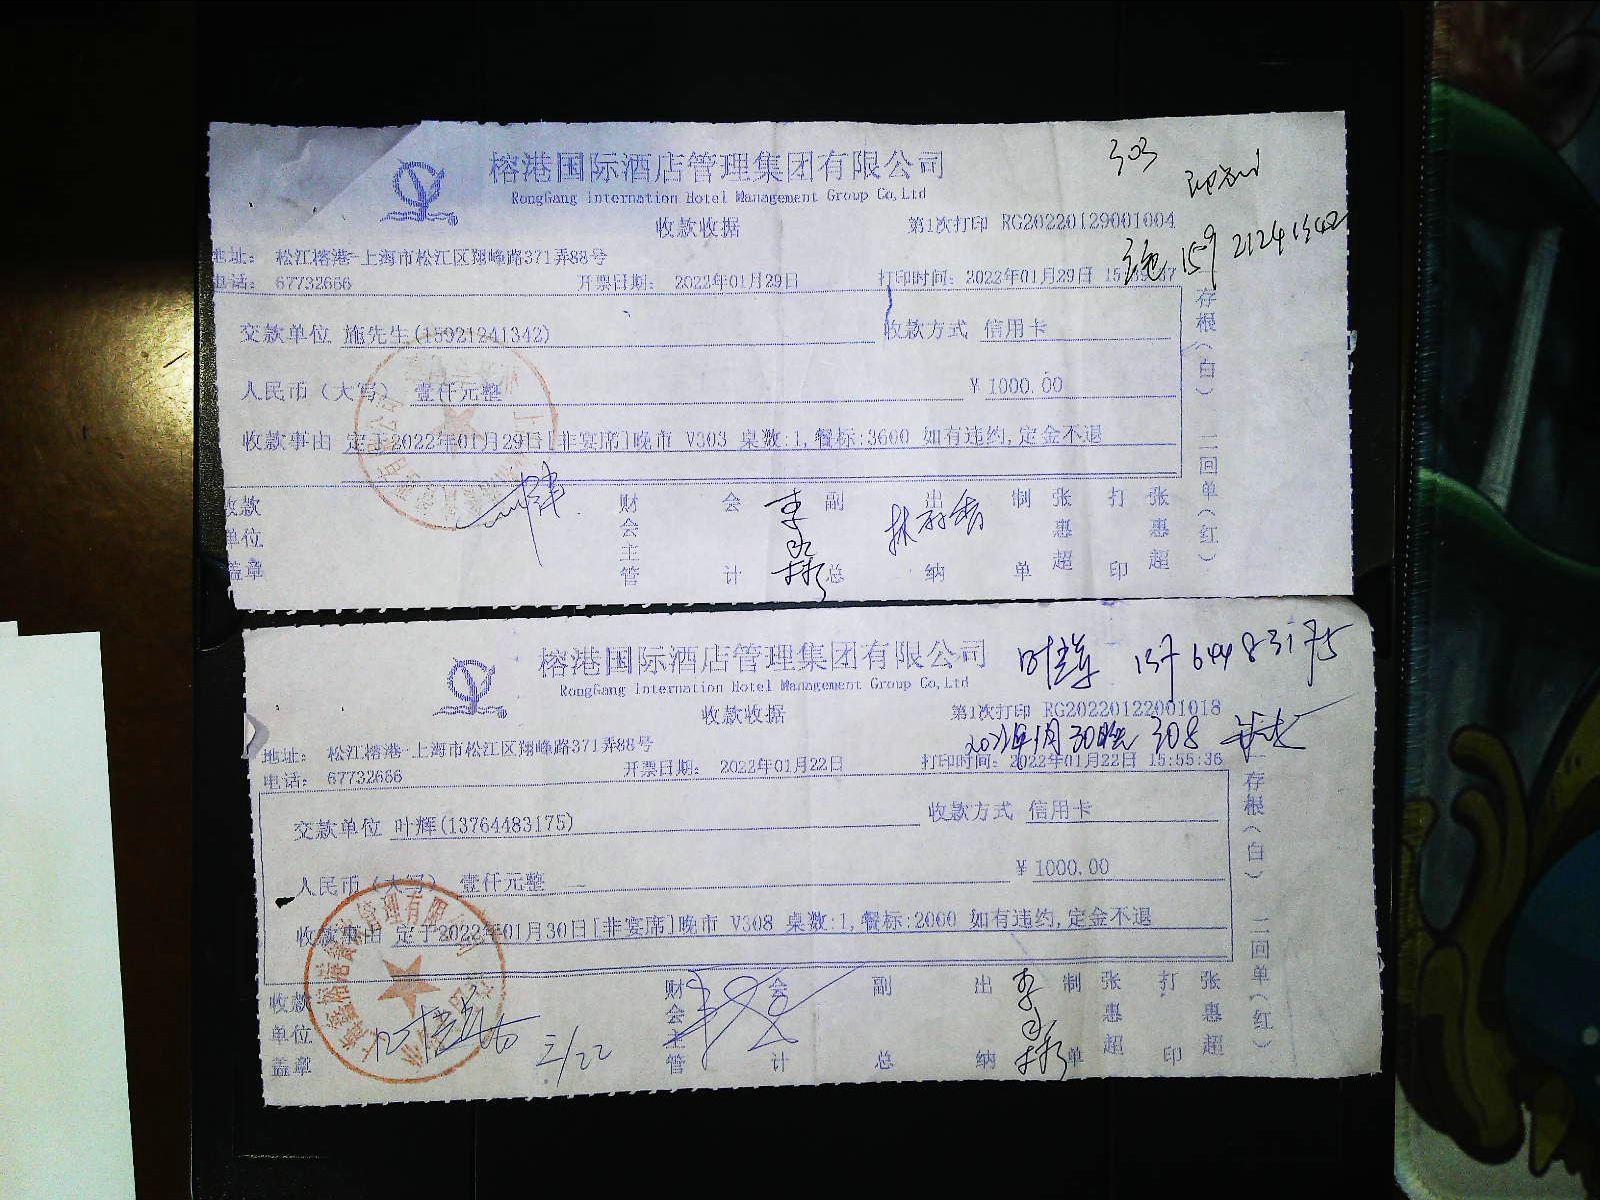 榕港国际酒店管理集团有限公司
RongGang Internation Hotel Management Group Co,Ltd
303
收款收据
第1次打印 RG20220129001004
地址: 松江榕港-上海市松江区翔峰路371弄88号
施 159 21241342
电话: 67732666 开票日期: 2022年01月29日 打印时间: 2022年01月29日
交款单位 施先生(15921241342) 收款方式 信用卡
人民币(大写) 壹仟元整 ¥1000.00
收款事由 定于2022年01月29日[非宴席]晚市 V303 桌数:1,餐标:3600 如有违约,定金不退
存根(白) 二回单(红)
收款单位盖章 财会主管 会计 副总 出纳 制单 张惠超 打印 张惠超
榕港国际酒店管理集团有限公司
RongGang Internation Hotel Management Group Co,Ltd
137 6448 3175
收款收据
第1次打印 RG20220122001018
2022年1月30晚 308
地址: 松江榕港-上海市松江区翔峰路371弄88号
电话: 67732666 开票日期: 2022年01月22日 打印时间: 2022年01月22日 15:55:36
交款单位 叶辉(13764483175) 收款方式 信用卡
人民币(大写) 壹仟元整 ¥1000.00
收款事由 定于2022年01月30日[非宴席]晚市 V308 桌数:1,餐标:2000 如有违约,定金不退
存根(白) 二回单(红)
收款单位盖章 财会主管 会计 副总 出纳 制单 张惠超 打印 张惠超